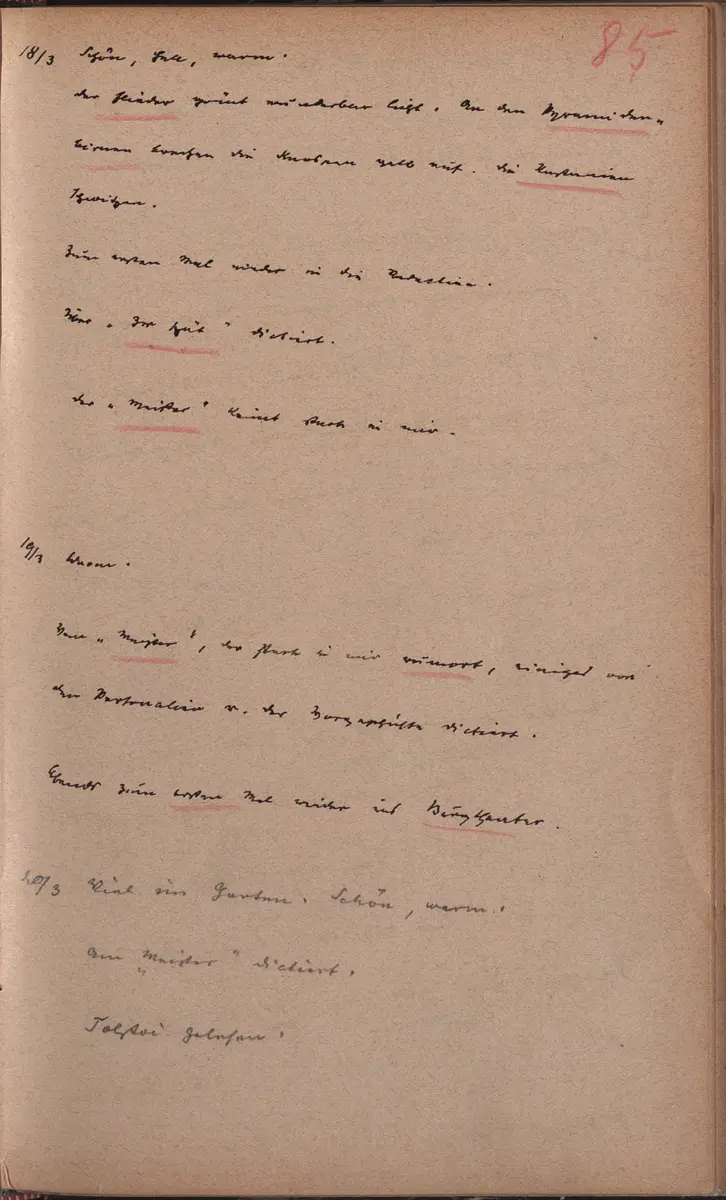 85
18/3 Schön, hell, warm.
der Flieder grünt wunderbar licht. An den Pyramiden-
birnen brechen die Knospen gelb auf. die Kastanien
schwitzen.
Zum ersten Mal wieder in die Redaction.
Über „Die Zeit“ dictiert.
der „Meister“ keimt stark in mir.
19/3 Warm.
Vom „Meister“, der stark in mir rumort, einiges von
den Personalien u. der Vorgeschichte dictiert.
Abends zum ersten Mal wieder ins Burgtheater.
20/3 Viel im Garten. Schön, warm.
Am „Meister“ dictiert.
Tolstoi gelesen.